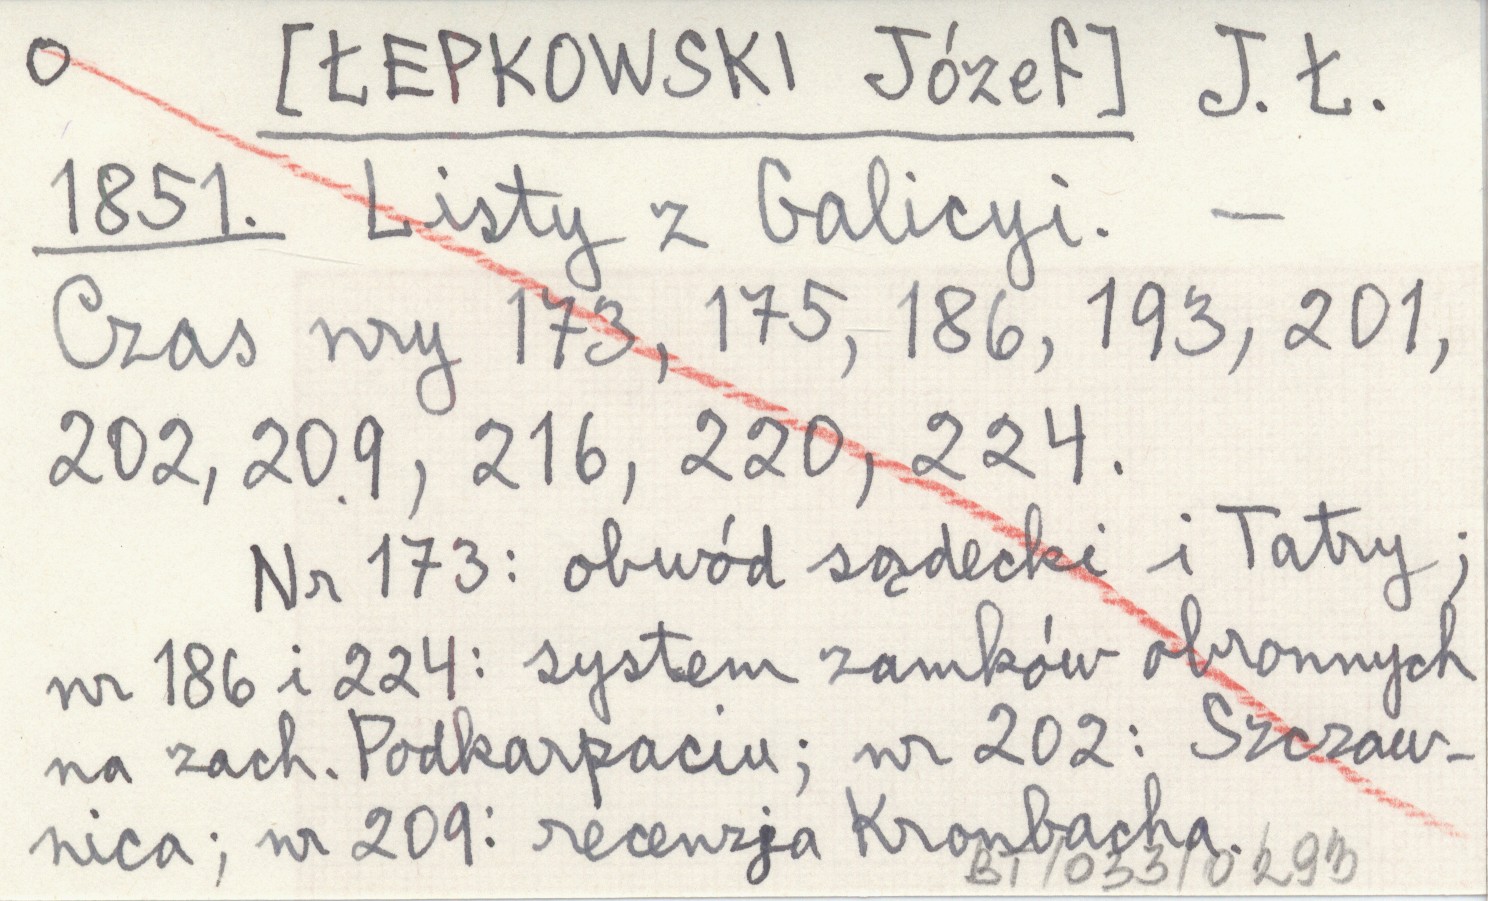 O [ŁEPKOWSKI Józef] J. Ł.
1851. Listy z Galicyi. —
Czas nry 173, 175, 186, 193, 201,
202, 209, 216, 220, 224.
Nr 173: obwód sądecki i Tatry;
nr 186 i 224: system zamków obronnych
na zach. Podkarpaciu; nr 202: Szczaw-
nica; nr 209: recenzja Kronbacha.
BT/033/0293